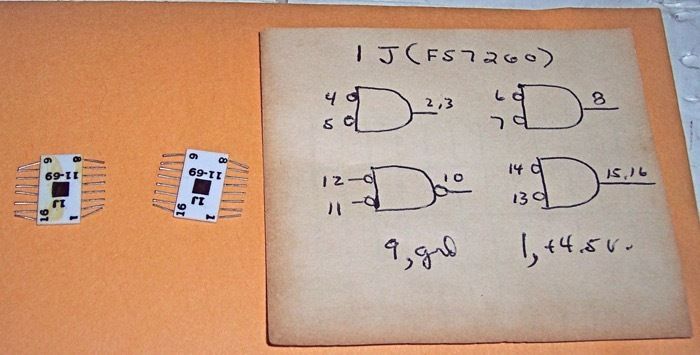 1J (FS7260)
4 2,3
5
6 8
7
12 10
11
14 15,16
13
9, grd 1, +4.5 v.
9 8
11-69
1J
16 1
9 8
11-69
1J
16 1